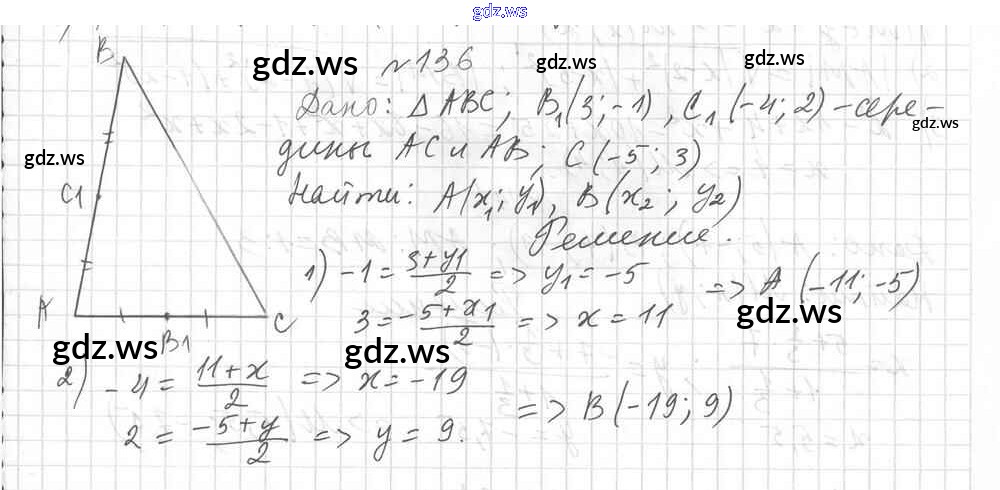 gdz.ws
В
gdz.ws
№136
gdz.ws
gdz.ws
Дано: Δ ABC; B₁(3;-1), C₁(-4; 2) - сере-
gdz.ws
gdz.ws
дины AC и AB; C(-5; 3)
C1
Найти: A(x₁; y₁), B(x₂; y₂)
Решение.
1) -1 = (3+y₁)/2 => y₁ = -5
=> A (-11; -5)
3 = (-5+x₁)/2 => x = 11
gdz.ws
A
C
B1
gdz.ws
gdz.ws
2) -4 = (11+x)/2 => x = -19
=> B(-19; 9)
2 = (-5+y)/2 => y = 9.